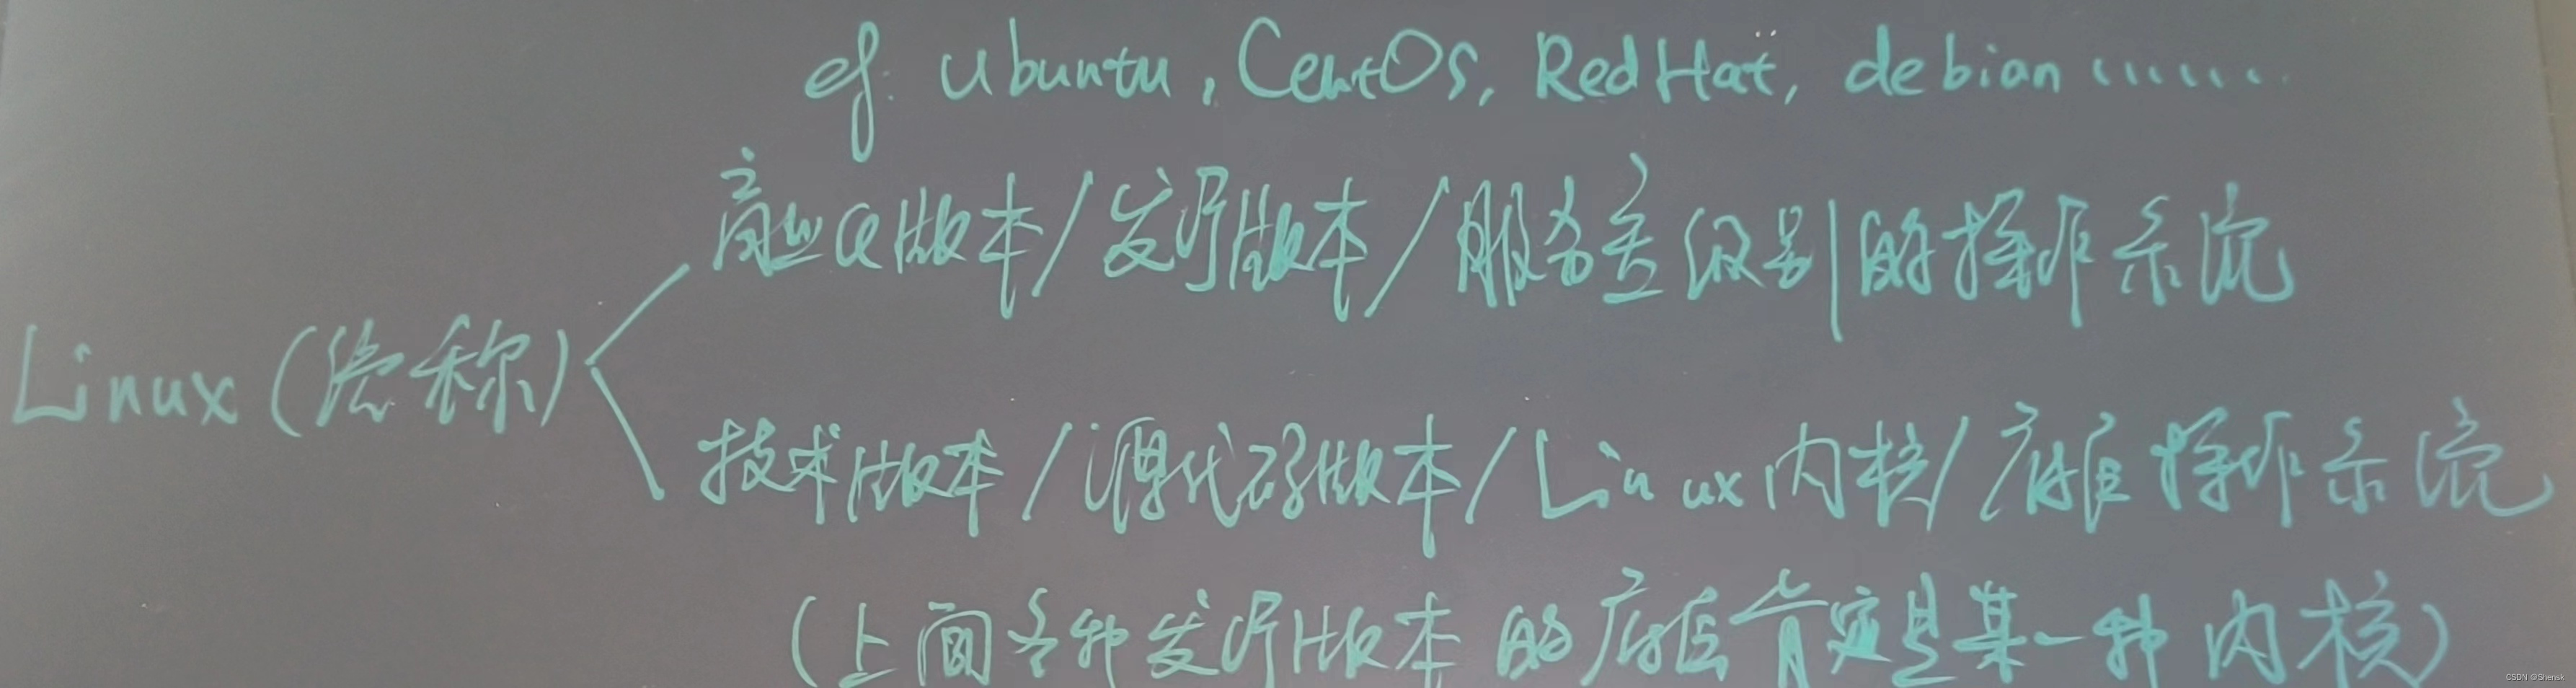 eg. Ubuntu, CentOs, RedHat, debian ……
商业化版本/发行版本/服务器级别的操作系统
Linux (总称)
技术版本/源代码版本/Linux内核/底层操作系统
(上面各种发行版本的底层肯定是某一种内核)
CSDN @Shensk